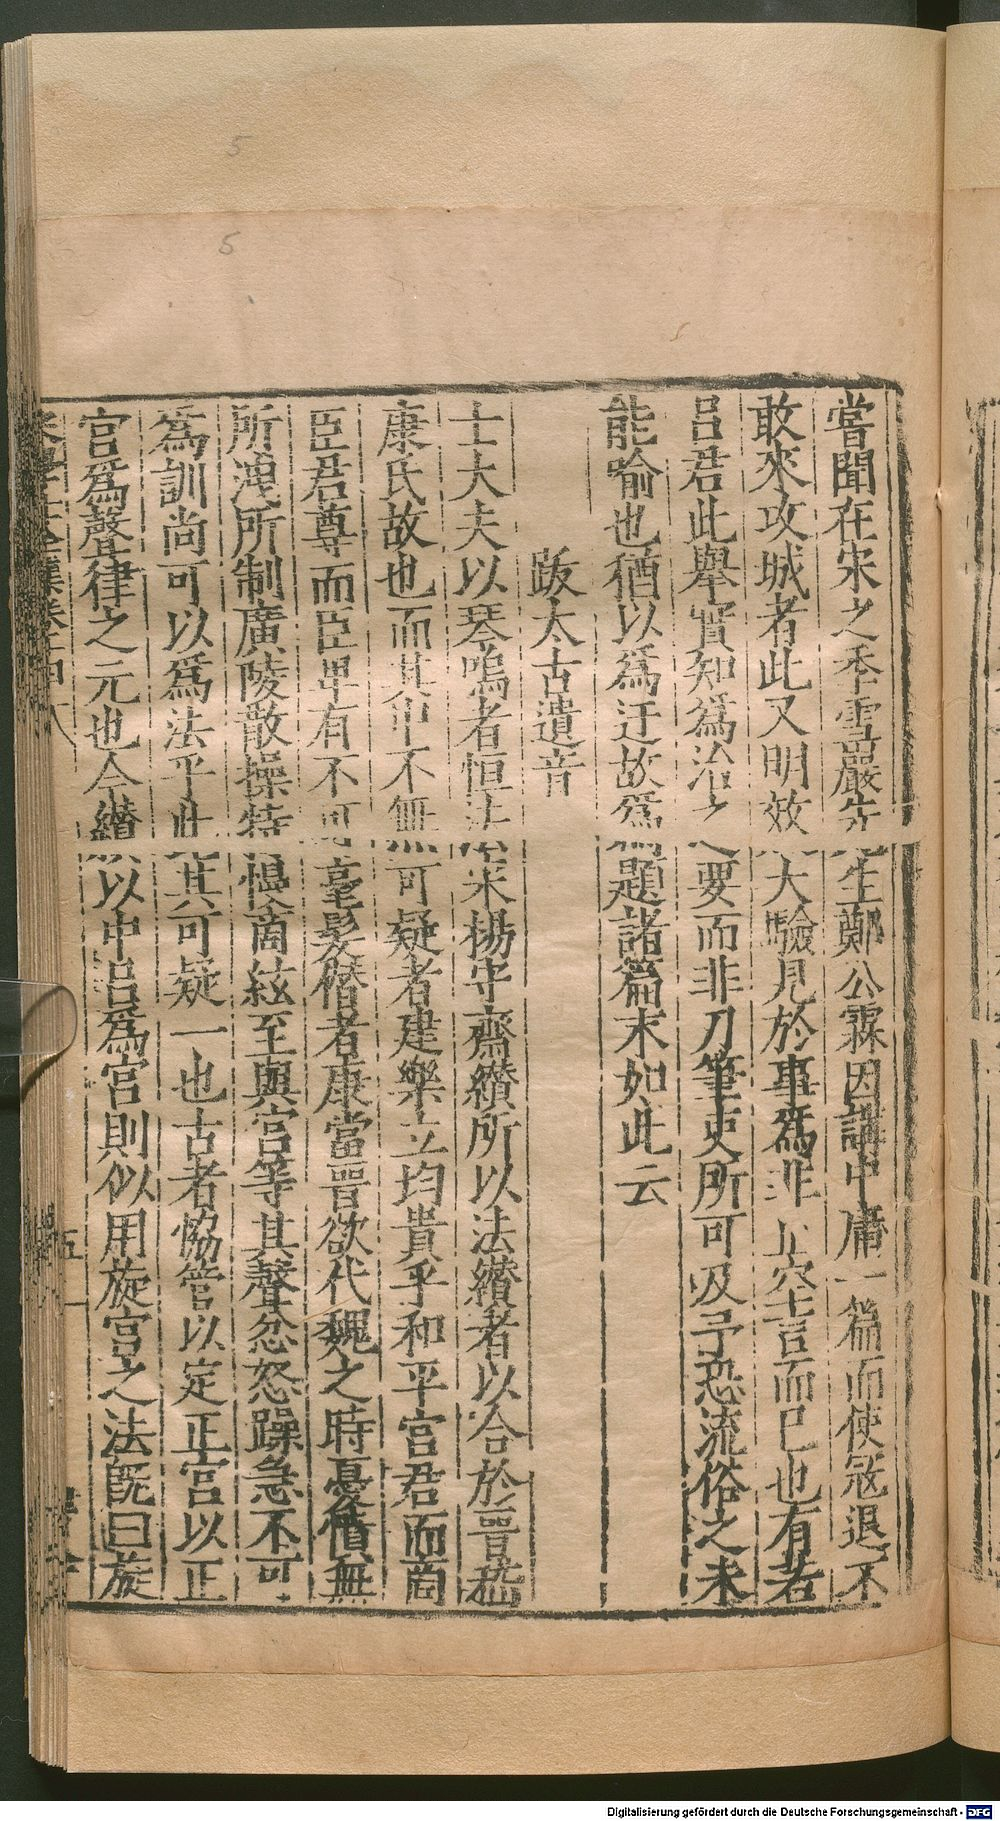 嘗聞在宋之季雪巖先生鄭公霖因講中庸一篇而使寇退不
敢來攻城者此又明效大驗見於事爲非止空言而已也有若
呂君此舉實知爲治之要而非刀筆吏所可及予恐流俗之未
能喻也猶以爲迂故爲題諸篇末如此云
跋太古遺音
士大夫以琴鳴者恒法宋楊守齋纘所以法纘者以合於晉嵇
康氏故也而其中不無可疑者建樂立均貴乎和平宮君而商
臣君尊而臣卑有不可毫髮僭者康當晉欲代魏之時憂憤無
所洩所制廣陵散操特慢商絃至與宮等其聲忿怒躁急不可
爲訓尚可以爲法乎此其可疑一也古者恊管以定正宮以正
宮爲聲律之元也今纘以中呂爲宮則似用旋宮之法旣曰旋
5
5
Digitalisierung gefördert durch die Deutsche Forschungsgemeinschaft - DFG